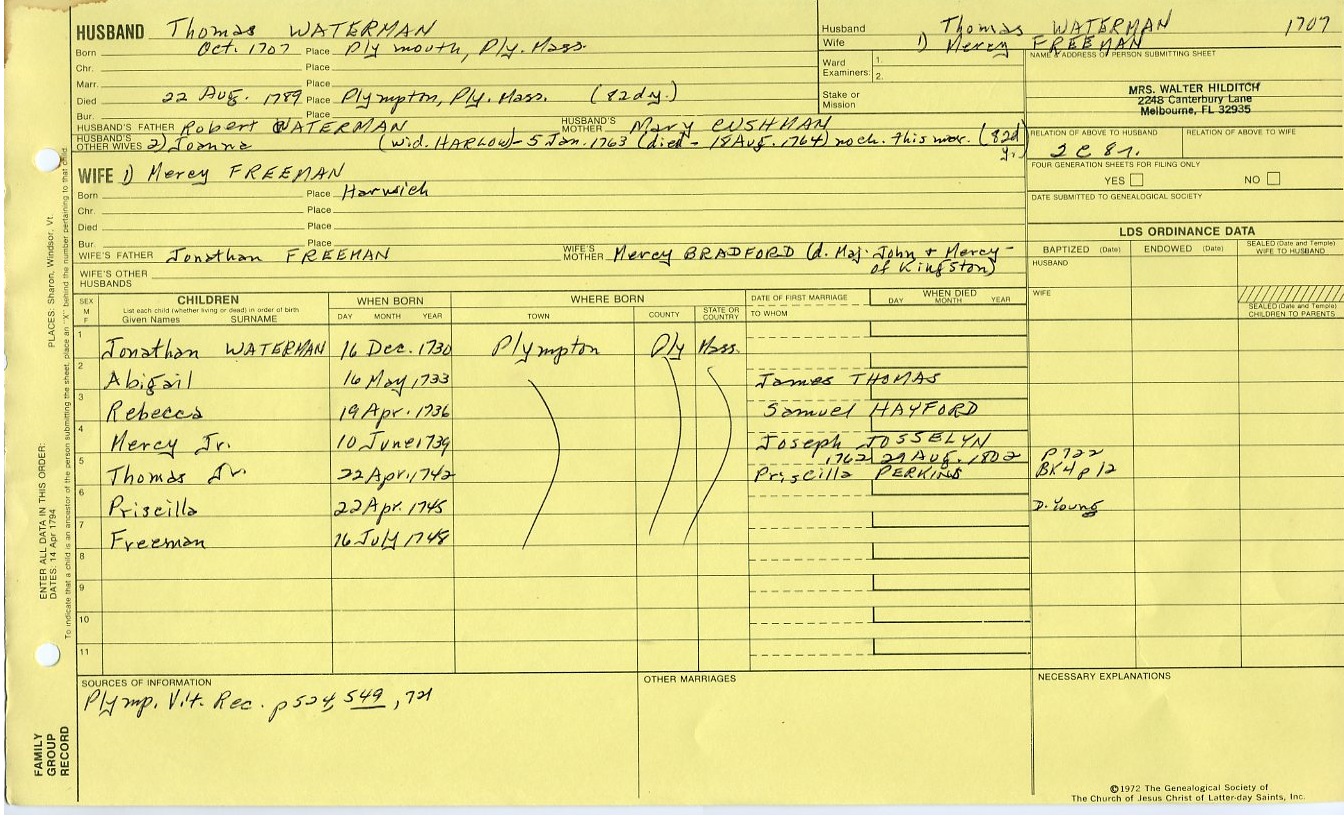 HUSBAND Thomas WATERMAN
Born Oct. 1707 Place Plymouth, Ply. Mass.
Chr. Place
Marr. Place
Died 22 Aug. 1789 Place Plympton, Ply. Mass. (82dy.)
Bur. Place
HUSBAND'S FATHER Robert WATERMAN HUSBAND'S MOTHER Mary CUSHMAN
HUSBAND'S OTHER WIVES 2) Joanna (wid. HARLOW) - 5 Jan. 1763 (died - 18 Aug. 1764) no ch. this mar. (82d yr.)
Husband Thomas WATERMAN 1707
Wife 1) Mercy FREEMAN
Ward Examiners: 1.
2.
Stake or Mission
NAME & ADDRESS OF PERSON SUBMITTING SHEET
MRS. WALTER HILDITCH
2248 Canterbury Lane
Melbourne, FL 32935
RELATION OF ABOVE TO HUSBAND RELATION OF ABOVE TO WIFE
2 C 8r.
FOUR GENERATION SHEETS FOR FILING ONLY
YES NO
DATE SUBMITTED TO GENEALOGICAL SOCIETY
WIFE 1) Mercy FREEMAN
Born Place Harwich
Chr. Place
Died Place
Bur. Place
WIFE'S FATHER Jonathan FREEMAN WIFE'S MOTHER Mercy BRADFORD (d. Maj. John + Mercy - of Kingston)
WIFE'S OTHER HUSBANDS
LDS ORDINANCE DATA
BAPTIZED (Date) ENDOWED (Date) SEALED (Date and Temple) WIFE TO HUSBAND
HUSBAND
WIFE
SEALED (Date and Temple) CHILDREN TO PARENTS
SEX M F CHILDREN WHEN BORN WHERE BORN DATE OF FIRST MARRIAGE WHEN DIED
List each child (whether living or dead) in order of birth
Given Names SURNAME DAY MONTH YEAR TOWN COUNTY STATE OR COUNTRY TO WHOM DAY MONTH YEAR
1 Jonathan WATERMAN 16 Dec. 1730 Plympton Ply Mass.
2 Abigail 16 May, 1733 James THOMAS
3 Rebecca 19 Apr. 1736 Samuel HAYFORD
4 Mercy Jr. 10 June 1739 Joseph JOSSELYN
5 Thomas Jr. 22 Apr. 1742 1762 29 Aug. 1802 Priscilla PERKINS p 722 BK 4 p 12
6 Priscilla 22 Apr. 1745 D. Young
7 Freeman 16 July 1748
8
9
10
11
SOURCES OF INFORMATION
Plymp. Vit. Rec. p 524, 549, 721
OTHER MARRIAGES
NECESSARY EXPLANATIONS
©1972 The Genealogical Society of
The Church of Jesus Christ of Latter-day Saints, Inc.
FAMILY GROUP RECORD
ENTER ALL DATA IN THIS ORDER:
DATES: 14 Apr 1794 PLACES: Sharon, Windsor, Vt.
To indicate that a child is an ancestor of the person submitting the sheet, place an "X" behind the number pertaining to that child.